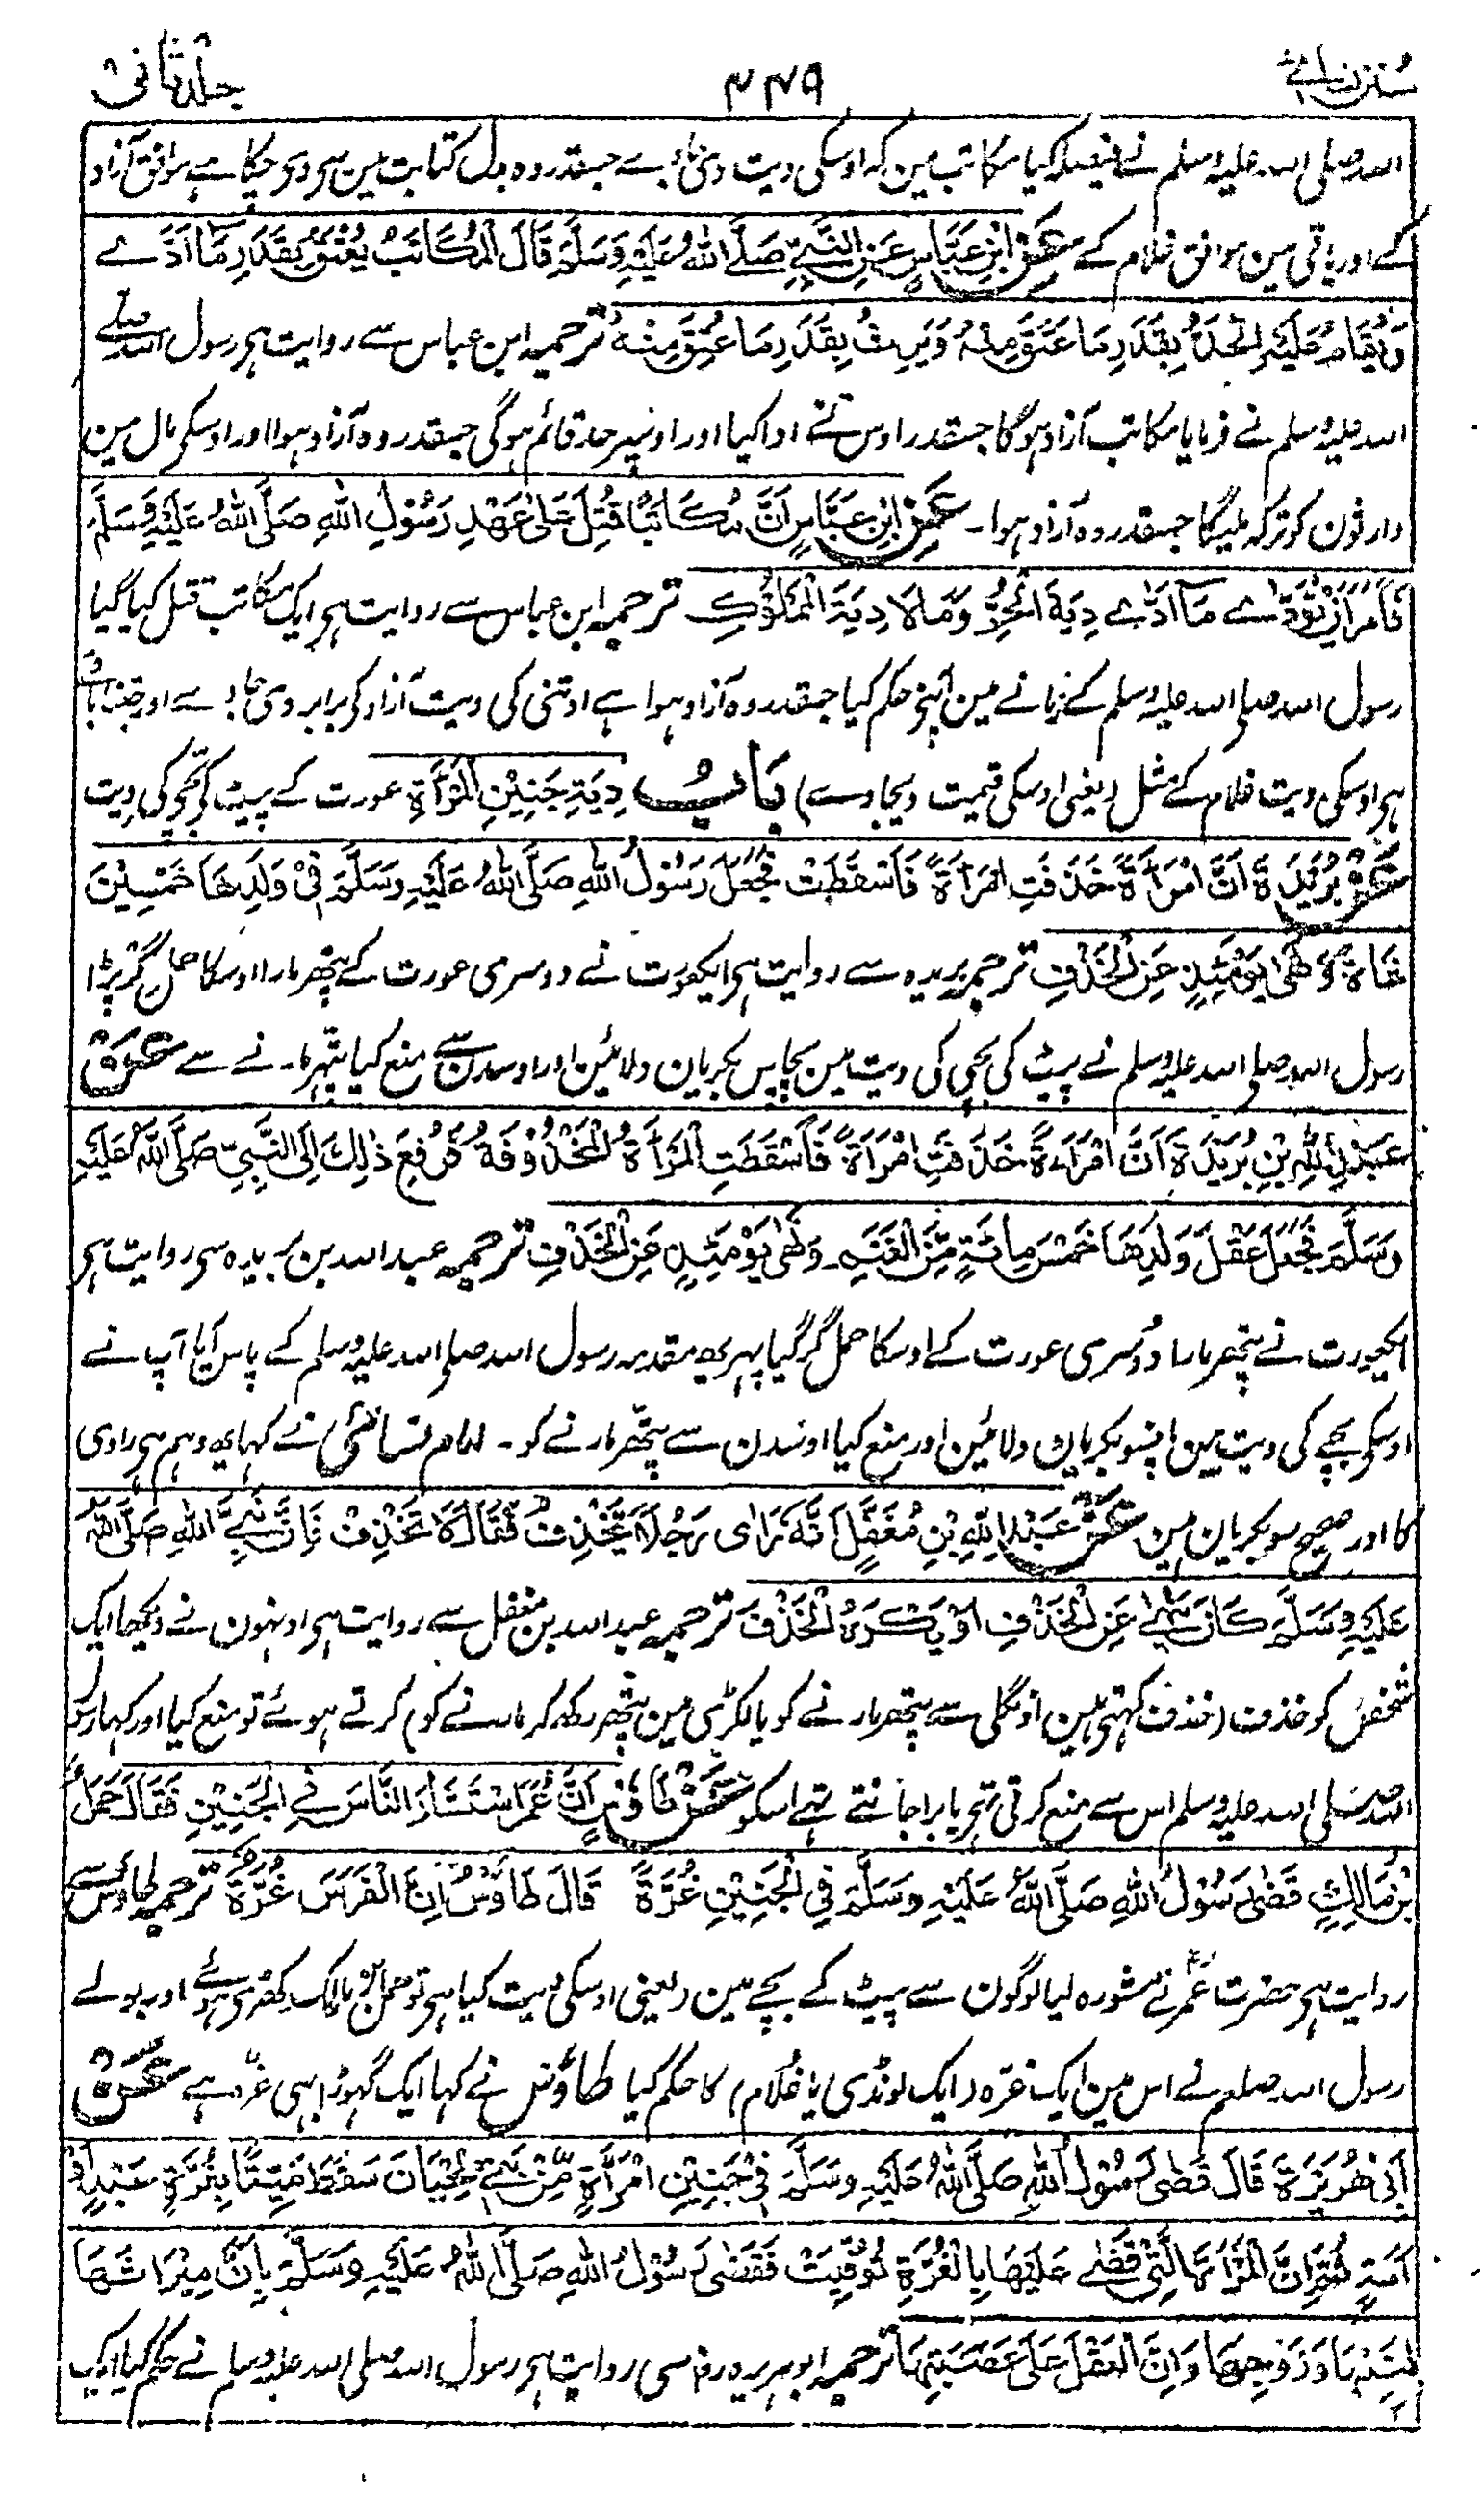 سُنن نسائی ۴۴۹ جلد ثانی
اللہ صلی اللہ علیہ وسلم نے فیصلہ کیا مکاتب مین کہ اوسکی دیت دی جاوے جسقدر وہ بدل کتابت مین سی دی چکا ہے موافق آزاد
کے اور باقی مین موافق غلام کے عَنِ ابْنِ عَبَّاسٍ عَنِ النَّبِيِّ صَلَّى اللهُ عَلَيْهِ وَسَلَّمَ قَالَ الْمُكَاتَبُ يُعْتَقُ بِقَدَرِ مَا اَدّٰے
وَيُقَامُ عَلَيْهِ الْحَدُّ بِقَدَرِ مَا عَتَقَ مِنْهُ وَيَرِثُ بِقَدَرِ مَا عُتِقَ مِنْهُ ترجمہ ابن عباس سے روایت ہی رسول اللہ صلے
اللہ علیہ وسلم نے فرمایا مکاتب آزاد ہوگا جسقدر اوس نے ادا کیا اور اوسپر حد قائم ہوگی جسقدر وہ آزاد ہوا اور اوسکی مال مین
وارثون کو ترکہ ملیگا جسقدر وہ آزاد ہوا۔ عَنِ ابْنِ عَبَّاسٍ اَنَّ مُكَاتَبًا قُتِلَ عَلٰى عَهْدِ رَسُوْلِ اللهِ صَلَّى اللهُ عَلَيْهِ وَسَلَّمَ
فَاَمَرَ اَنْ يُّوْدٰے مَا اَدّٰے دِيَةَ الْحُرِّ وَمَا لَا دِيَةَ الْمَمْلُوْكِ ترجمہ ابن عباس سے روایت ہی ایک مکاتب قتل کیا گیا
رسول اللہ صلی اللہ علیہ وسلم کے زمانے مین آپنے حکم کیا جسقدر وہ آزاد ہوا ہے اوتنی کی دیت آزاد کی برابر دی جاوے اور جتنا باقی
ہی اوسکی دیت غلام کے مثل (یعنی اوسکی قیمت دیجاوے) بَابُ دِيَةِ جَنِيْنِ الْمَرْأَةِ عورت کے پیٹ کی بچی کی دیت
عَنْ بُرَيْدَةَ اَنَّ امْرَأَةً خَذَفَتِ امْرَأَةً فَاَسْقَطَتْ فَجَعَلَ رَسُوْلُ اللهِ صَلَّى اللهُ عَلَيْهِ وَسَلَّمَ فِيْ وَلَدِهَا خَمْسِيْنَ
شَاةً وَنَهٰى يَوْمَئِذٍ عَنِ الْخَذْفِ ترجمہ بریدہ سے روایت ہی ایکعورت نے دوسری عورت کے پتھر مارا اوسکا حمل گر پڑا
رسول اللہ صلی اللہ علیہ وسلم نے پیٹ کی بچی کی دیت مین پچاس بکریان دلائین اور اوسدن سے منع کیا پتہر مارنے سے عَنْ
عَبْدِ اللهِ بْنِ بُرَيْدَةَ اَنَّ امْرَاَةً خَذَفَتِ امْرَاَةً فَاَسْقَطَتِ الْمَرْاَةُ الْمَخْذُوْفَةُ فَرُفِعَ ذٰلِكَ اِلَى النَّبِيِّ صَلَّى اللهُ عَلَيْهِ
وَسَلَّمَ فَجَعَلَ عَقْلَ وَلَدِهَا خَمْسَ مِائَةٍ مِّنَ الْغَنَمِ۔ وَنَهٰى يَوْمَئِذٍ عَنِ الْخَذْفِ ترجمہ عبداللہ بن بریدہ سی روایت ہی
ایکعورت نے پتھر مارا دوسری عورت کے اوسکا حمل گر گیا پہر یہ مقدمہ رسول اللہ صلی اللہ علیہ وسلم کے پاس آیا آپ نے
اوسکی بچے کی دیت مین پانسو بکریان دلائین اور منع کیا اوسدن سے پتھر مارنے کو۔ امام نسائی نے کہا یہ وہم ہی راوی
کا اور صحیح سو بکریان ہین عَنْ عَبْدِ اللهِ بْنِ مُغَفَّلٍ اَنَّهٗ رَاٰى رَجُلًا يَّخْذِفُ فَقَالَ لَا تَخْذِفْ فَاِنَّ نَبِيَّ اللهِ صَلَّى اللهُ
عَلَيْهِ وَسَلَّمَ كَانَ يَنْهٰى عَنِ الْخَذْفِ اَوْ يَكْرَهُ الْخَذْفَ ترجمہ عبداللہ بن مغفل سے روایت ہی اونہون نے دیکھا ایک
شخص کو خذف (خذف کہتی ہین اونگلی سے پتھر مارنے کو یا لکڑی مین پتھر رکھ کر مارنے کو) کرتے ہوئے تو منع کیا اور کہا رسول
اللہ صلی اللہ علیہ وسلم اس سے منع کرتی تہی یا برا جانتے تہے اسکو عَنْ طَاوٗسٍ اَنَّ عُمَرَ اسْتَشَارَ النَّاسَ فِي الْجَنِيْنِ فَقَالَ حَمَلُ
بْنُ مَالِكٍ قَضٰى رَسُوْلُ اللهِ صَلَّى اللهُ عَلَيْهِ وَسَلَّمَ فِي الْجَنِيْنِ غُرَّةً قَالَ طَاوٗسٌ اِنَّ الْفَرَسَ غُرَّةٌ ترجمہ طاؤس سے
روایت ہی حضرت عمر نے مشورہ لیا لوگون سے پیٹ کے بچے مین (یعنی اوسکی دیت کیا ہی) تو حمل بن مالک کھڑی ہوئے اور بولے
رسول اللہ صلعم نے اس مین ایک غرہ (ایک لونڈی یا غلام) کا حکم کیا طاؤس نے کہا ایک گہوڑا بہی غرہ ہے عَنْ
اَبِيْ هُرَيْرَةَ قَالَ قَضٰى رَسُوْلُ اللهِ صَلَّى اللهُ عَلَيْهِ وَسَلَّمَ فِيْ جَنِيْنِ امْرَأَةٍ مِّنْ بَنِيْ لِحْيَانَ سَقَطَ مَيِّتًا بِغُرَّةٍ عَبْدٍ اَوْ
اَمَةٍ ثُمَّ اِنَّ الْمَرْاَةَ الَّتِيْ قَضٰے عَلَيْهَا بِالْغُرَّةِ تُوُفِّيَتْ فَقَضٰى رَسُوْلُ اللهِ صَلَّى اللهُ عَلَيْهِ وَسَلَّمَ بِاَنَّ مِيْرَاثَهَا
لِبَنِيْهَا وَزَوْجِهَا وَاِنَّ الْعَقْلَ عَلٰى عَصَبَتِهَا ترجمہ ابوہریرہ رض سی روایت ہی رسول اللہ صلی اللہ علیہ وسلم نے حکم کیا ایک